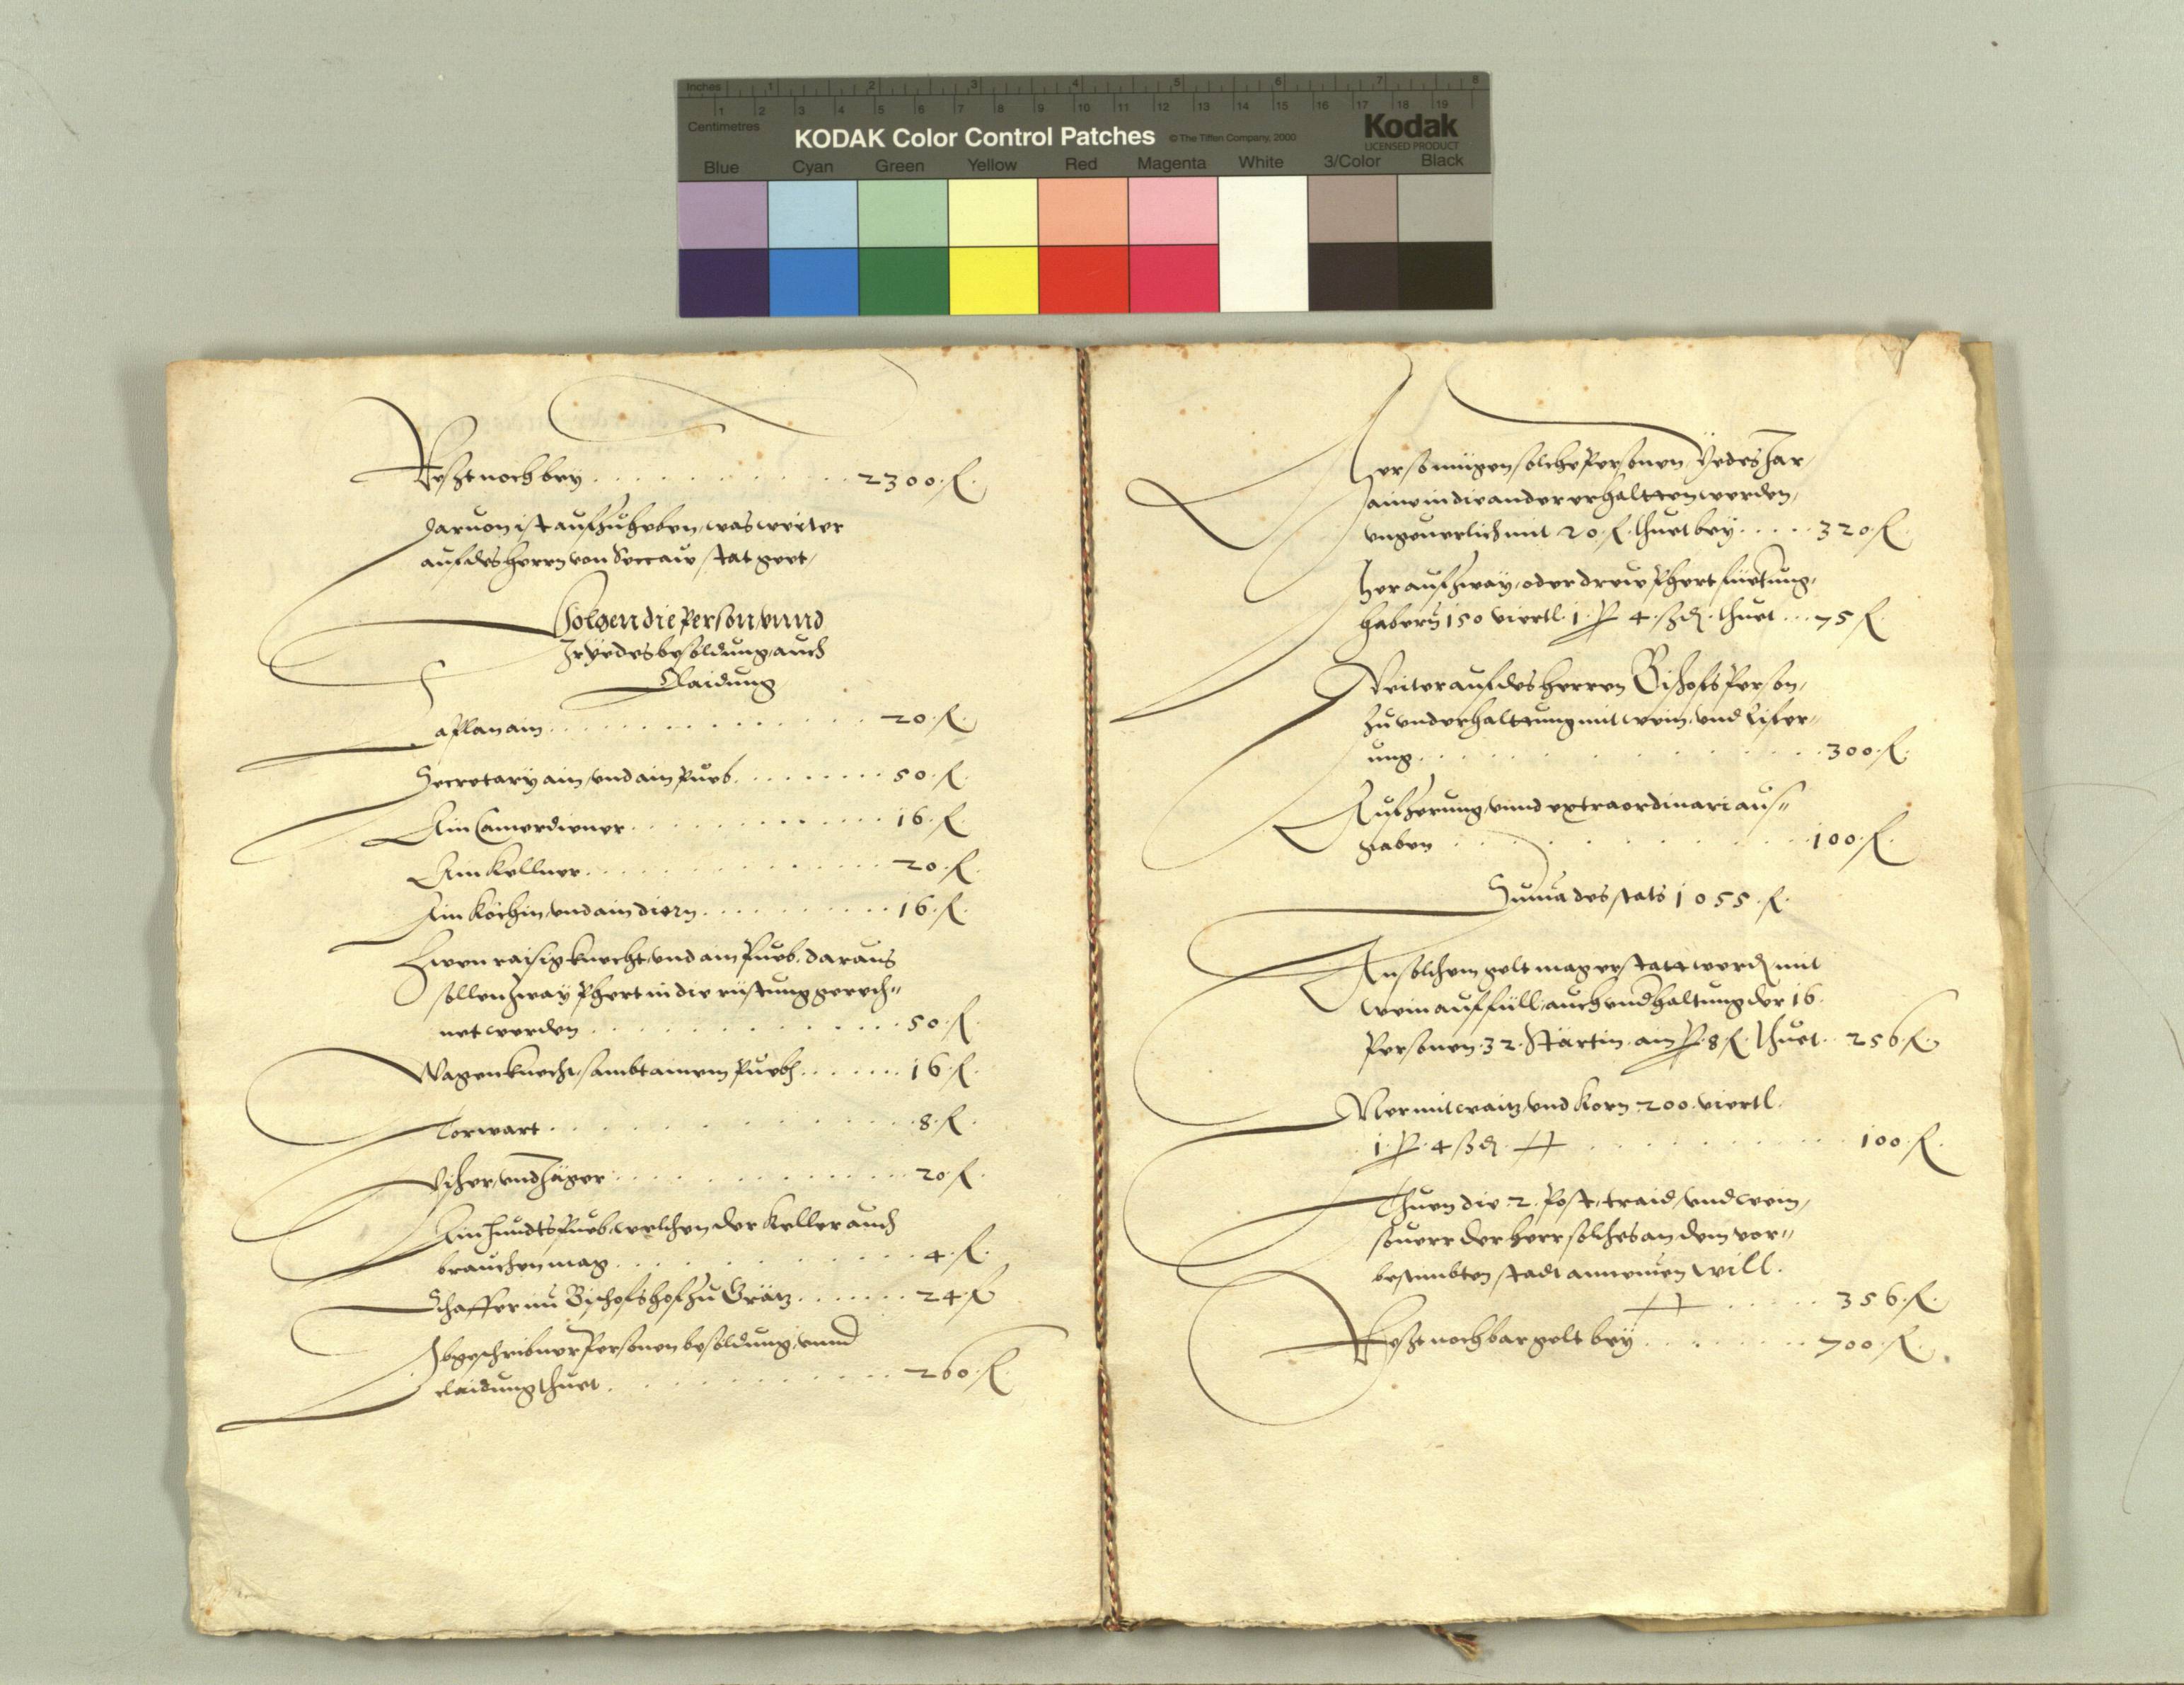 Inches 1 2 3 4 5 6 7 8
1 2 3 4 5 6 7 8 9 10 11 12 13 14 15 16 17 18 19
Centimetres
KODAK Color Control Patches © The Tiffen Company, 2000 Kodak
LICENSED PRODUCT
Blue Cyan Green Yellow Red Magenta White 3/Color Black
Resst noch bey . . . 2300 . f .
Daruon ist aufzuheben, was weiter
auf des herrn von Seccaw stat geet,
Volgen die Person vnnd
Ir yedes besoldung, auch
Claidung
Caplan ain . . . 20 . f .
Secretary ain, vnd ain Pueb . . . 50 . f .
Ain Camerdiener . . . 16 . f .
Ain Kellner . . . 20 . f .
Ain Köchin, vnd ain diern . . . 16 . f .
Zwen raisig knecht, vnd ain Pueb, daraus
sollen zway Phert in die rüstung gerech=
net werden . . . 50 . f .
Wagenknecht, sambt ainem Puebn . . . 16 . f .
Torwart . . . 8 . f .
Vischer, vnd Jäger . . . 20 . f .
Ain hundts Pueb, welchen der Keller auch
brauchen mag . . . 4 . f .
Schaffer im Bischofshof zu Grätz . . . 24 . f
Obgeschribner Personen besoldung, vnnd
claidung thuet . . . 260 . f .
Herso mügen solche Personen, Yedes Jar,
aine in die ander erhaltten werden,
vngeuerlich mit 20 . f . thuet bey . . . 320 . f .
Her auf zway, oder drew Phert füetung,
habern 150 viertl . 1 . 4 . ß d . thuet . . . 75 f .
Weiter auf des herren Bischofs Person,
zu vnderhalttung mit wein, vnd Lifer=
ung . . . 300 . f .
Auszerung, vnnd extraordinari aus=
gaben . . . 100 . f .
Suma des stats 1055 . f .
An solchem gelt mag erstatt werdn mit
wein auffüll, auch vndhaltung der 16 .
Personen . 32 . Stärtin . ain . 8 f . thuet . . 256 . f .
Mer mit waitz, vnd Korn 200 . viertl .
1 . 4 ß d . . . 100 . f .
Thuen die . 2 . Post, traid, vnd wein,
souerr der herr solches an dem vor=
bestimbten stadt annemen will .
. . . 356 . f .
Resst noch bar gelt bey . . . 700 . f .